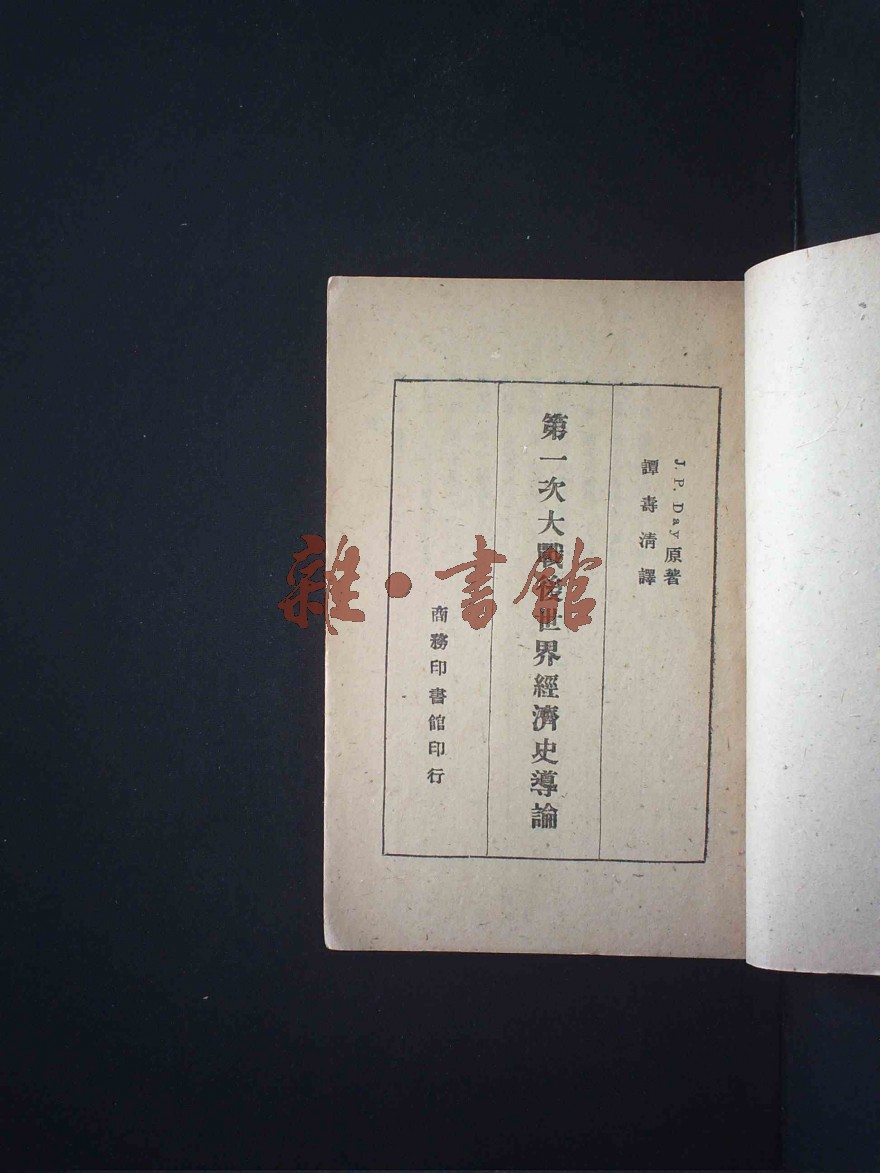 J. P. Day原著
譚壽清譯
第一次大戰後世界經濟史導論
商務印書館印行
雜·書館